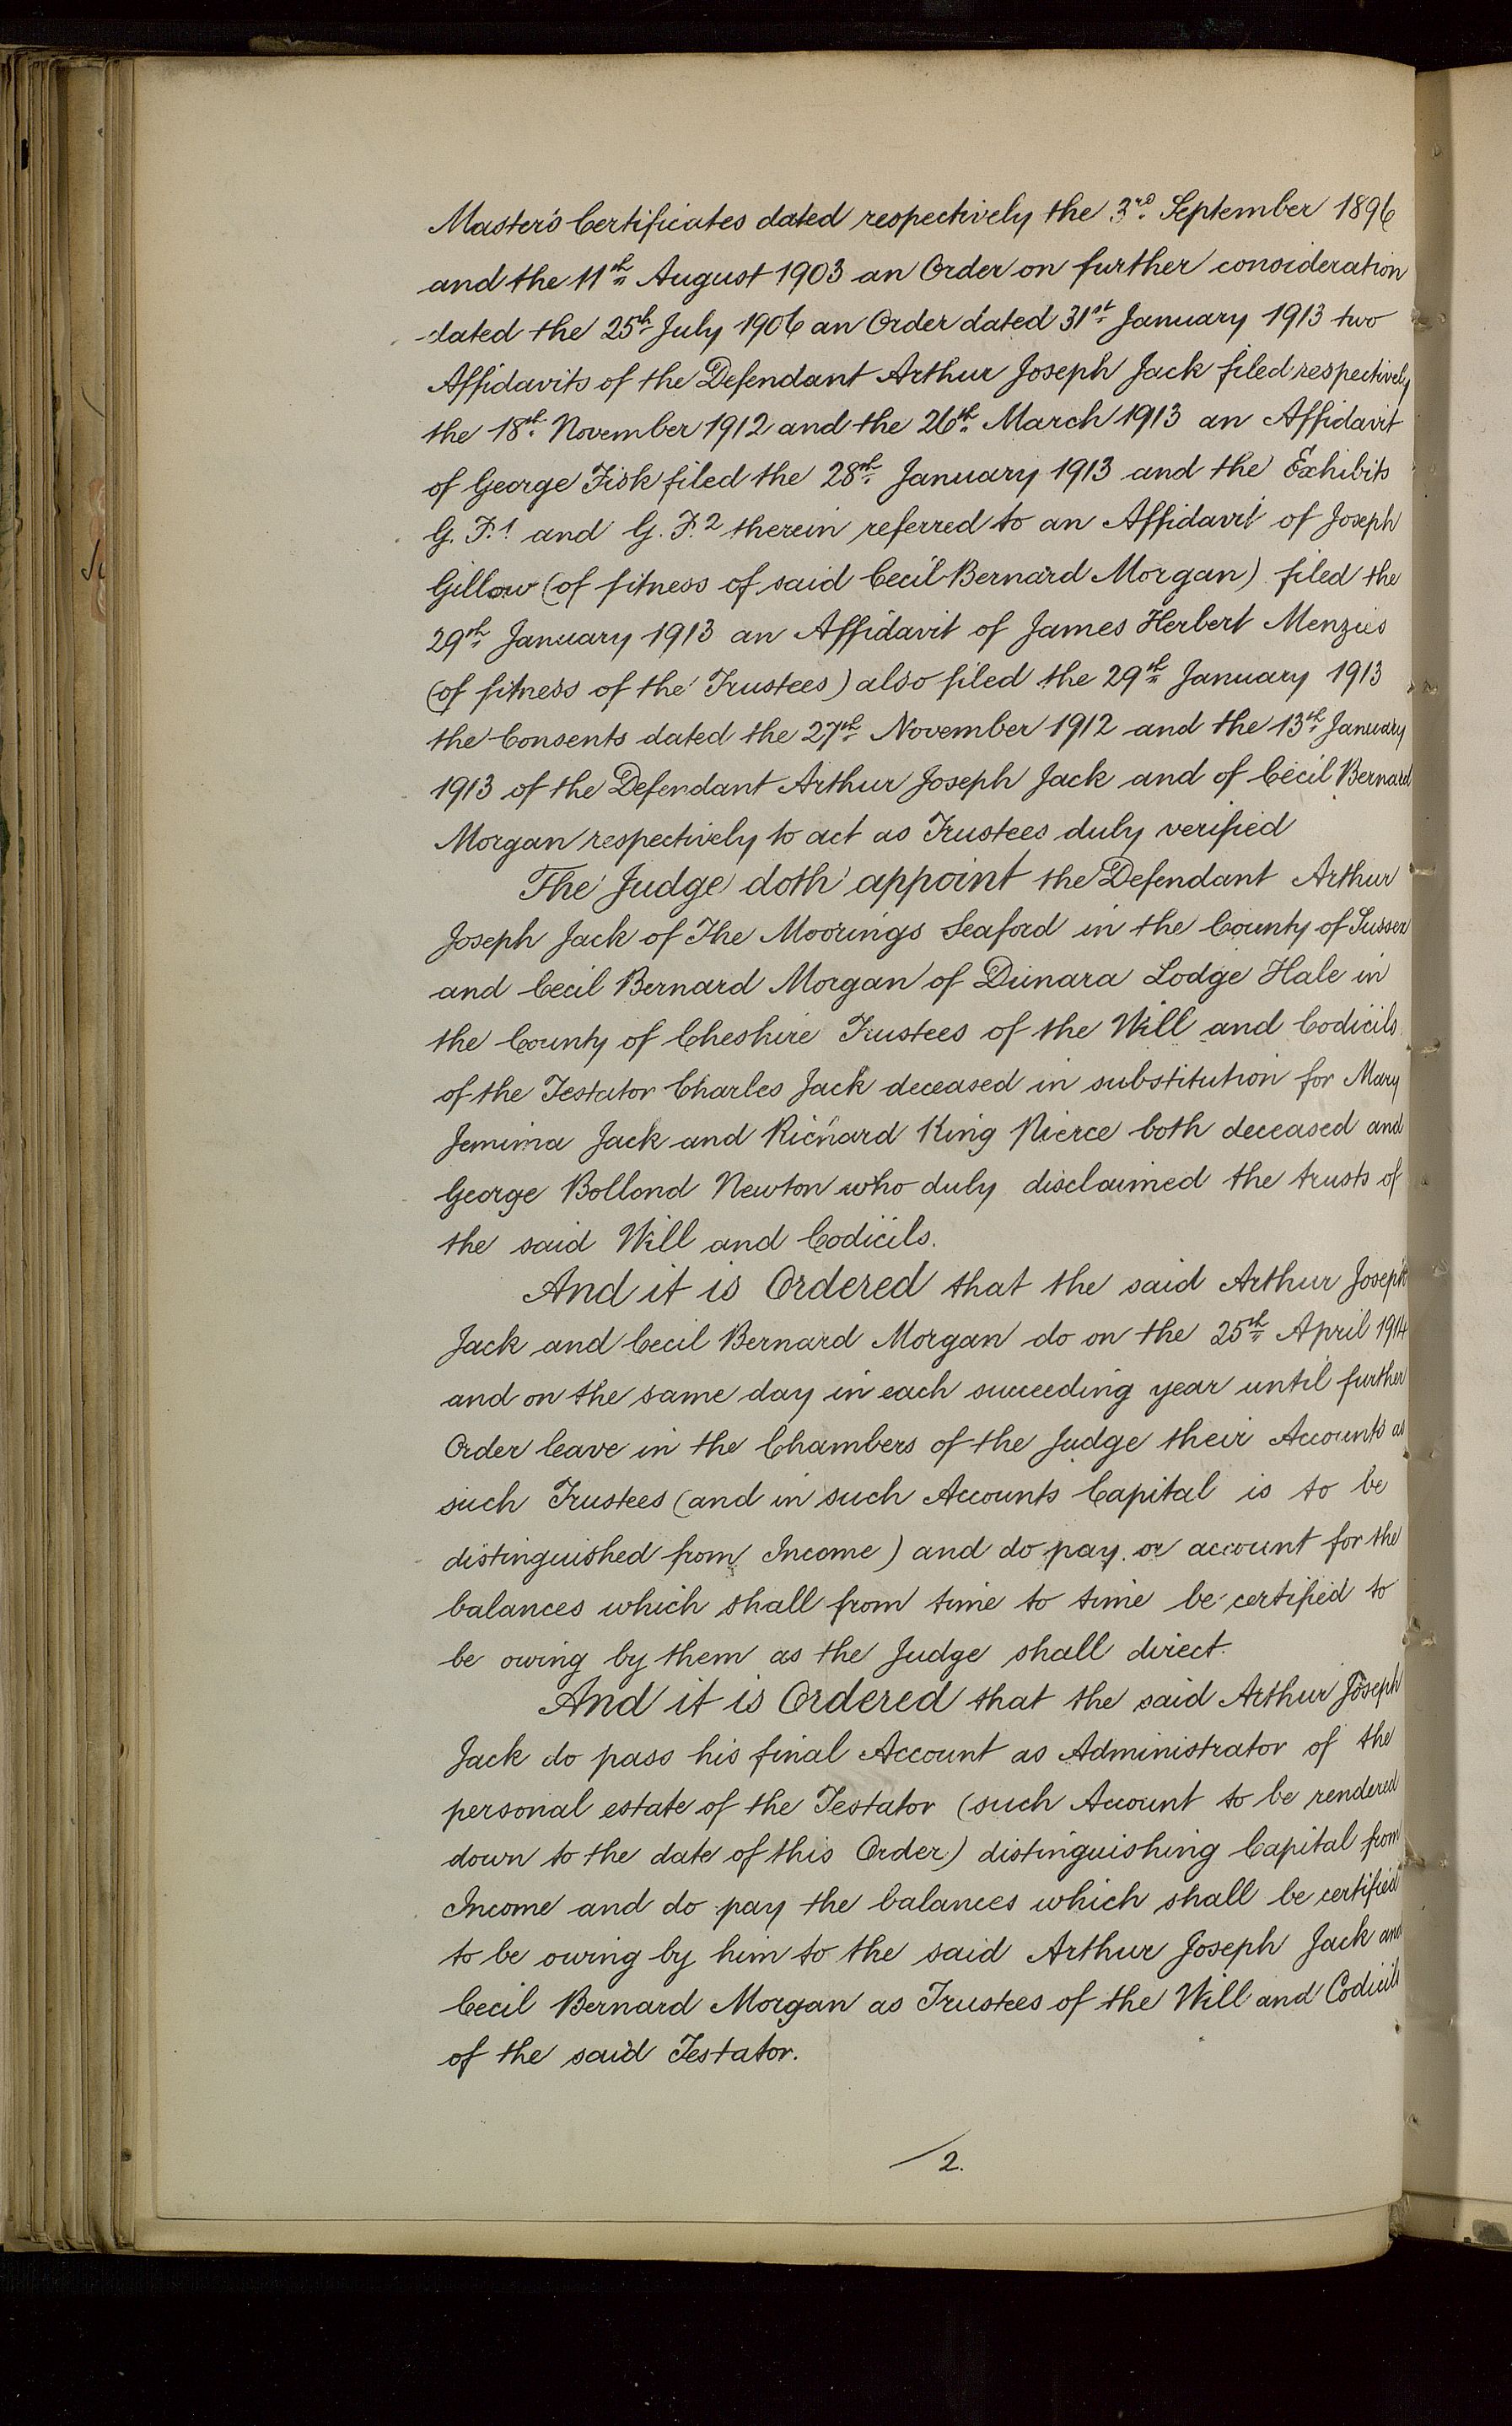 Master's Certificates dated respectively the 3rd September 1896
and the 11th August 1903 an Order on further consideration
dated the 25th July 1906 an Order dated 31st January 1913 two
Affidavits of the Defendant Arthur Joseph Jack filed respectively
the 18th November 1912 and the 26th March 1913 an Affidavit
of George Fisk filed the 28th January 1913 and the Exhibits
G. F. 1 and G. F. 2 therein referred to an Affidavit of Joseph
Gillow (of fitness of said Cecil Bernard Morgan) filed the
29th January 1913 an Affidavit of James Herbert Menzies
(of fitness of the Trustees) also filed the 29th January 1913
the Consents dated the 27th November 1912 and the 13th January
1913 of the Defendant Arthur Joseph Jack and of Cecil Bernard
Morgan respectively to act as Trustees duly verified
The Judge doth appoint the Defendant Arthur
Joseph Jack of The Moorings Seaford in the County of Sussex
and Cecil Bernard Morgan of Dunara Lodge Hale in
the County of Cheshire Trustees of the Will and Codicils
of the Testator Charles Jack deceased in substitution for Mary
Jemima Jack and Richard King Pierce both deceased and
George Bollond Newton who duly disclaimed the trusts of
the said Will and Codicils.
And it is Ordered that the said Arthur Joseph
Jack and Cecil Bernard Morgan do on the 25th April 1914
and on the same day in each succeeding year until further
Order leave in the Chambers of the Judge their Accounts as
such Trustees (and in such Accounts Capital is to be
distinguished from Income) and do pay or account for the
balances which shall from time to time be certified to
be owing by them as the Judge shall direct.
And it is Ordered that the said Arthur Joseph
Jack do pass his final Account as Administrator of the
personal estate of the Testator (such Account to be rendered
down to the date of this Order) distinguishing Capital from
Income and do pay the balances which shall be certified
to be owing by him to the said Arthur Joseph Jack and
Cecil Bernard Morgan as Trustees of the Will and Codicils
of the said Testator.
2.